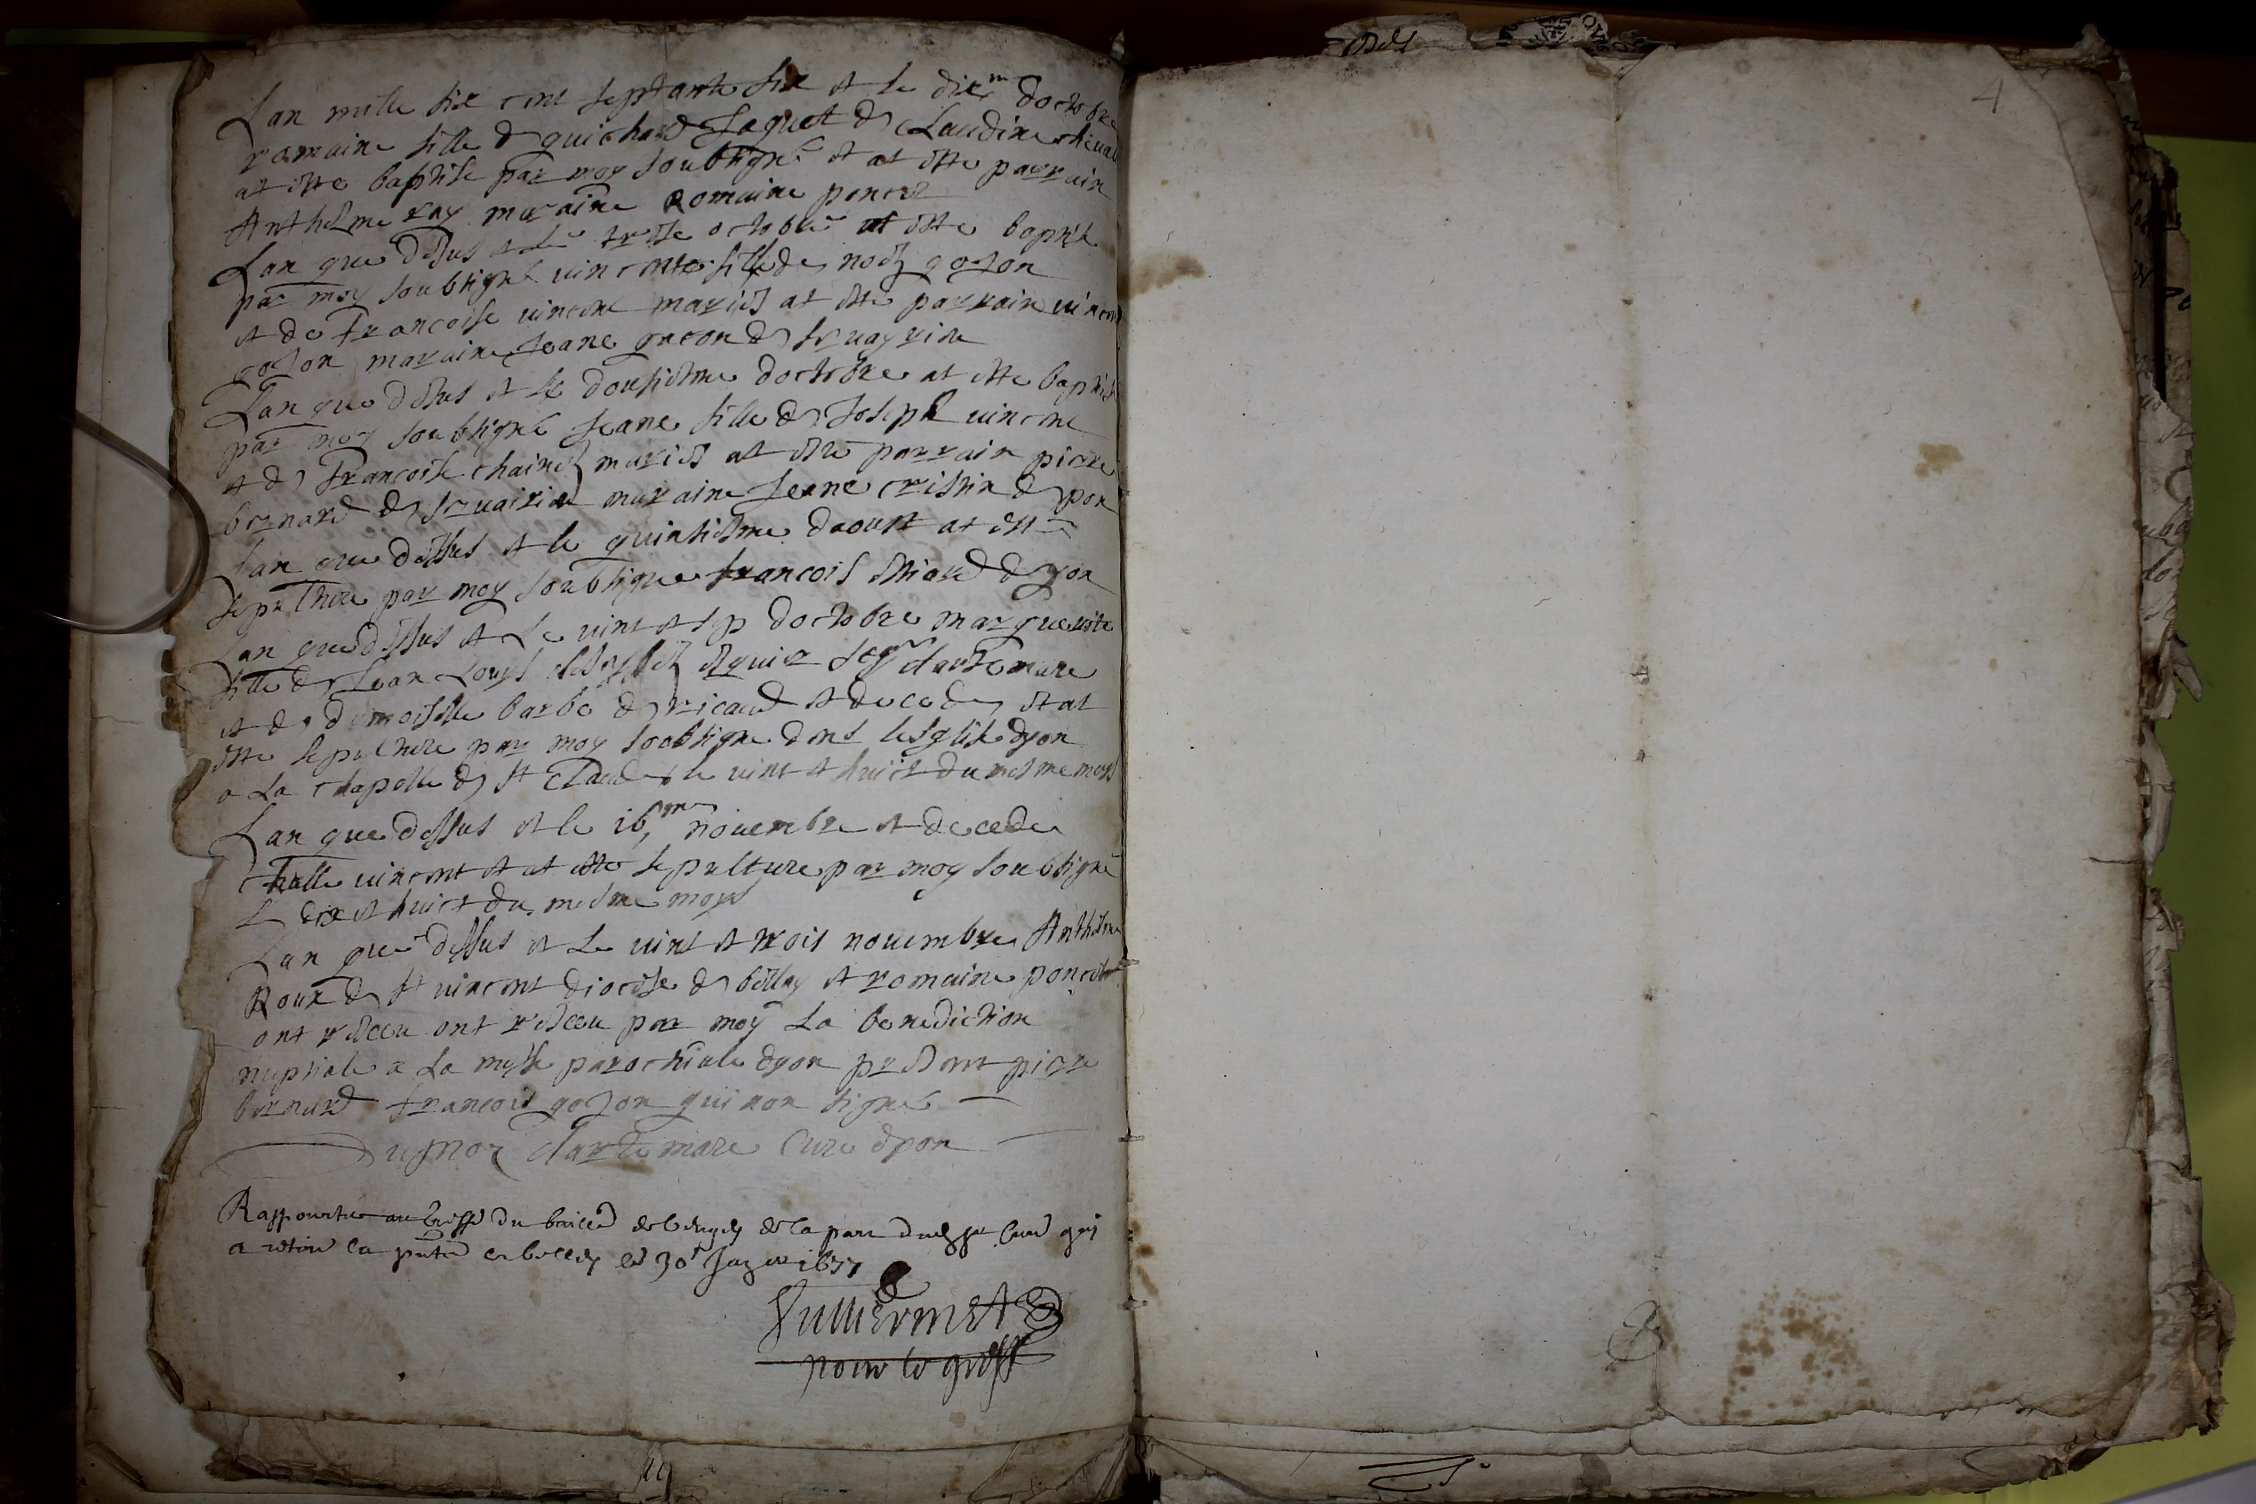 Lan mille six cent septante six et le dixm doctobre
romaine fille de guichard Jaquet de Claudine
at este baptise par moy soubsigné et at este parrain
Anthelme ray maraine Romaine poncet
Lan que dessus et le treise octobre at este baptise
par moy soubsigné vincente fille de noel gojon
et de francoise vincent mariés at este parrain vincent
gojon maraine Jeane
Lan que dessus et le dousiesme doctobre at este baptise
par moy soubsigné Jeane fille de Joseph vincent
et de francoise mariés at esté parrain piere
bernard de maraine Jeane cristin dyon
Lan que dessus et le quinsiesme daoust at este
sepulture par moy soubsigne francois dyon
Lan que dessus et Le vint et sep doctobre marguerite
fille de Jean Louys esquier segr dartemare
et de demoiselle barbe de ricaud et decede et at
este sepulture par moy soubsigne dens lesglise dyon
a La chapelle de st Claude le vint et huict du mesme moys
Lan que dessus et le 16me novembre et decede
vincent et at este sepulture par moy soubsigné
le dix et huict du mesme moys
Lan que dessus et Le vint et trois novembre Anthelme
Roux de st vincent diocese de bellay et romaine poncet
ont resceu ont resceu par moy La benediction
nuptiale a La messe parochiale dyon present piere
bernard francois gojon qui non signe
dartemare Cure dyon
Rapportée au greffe du bailla de beugey de la part dud sr Curé qui
a retiré la a belley le 30e Janvier 1677
pour le greff
4